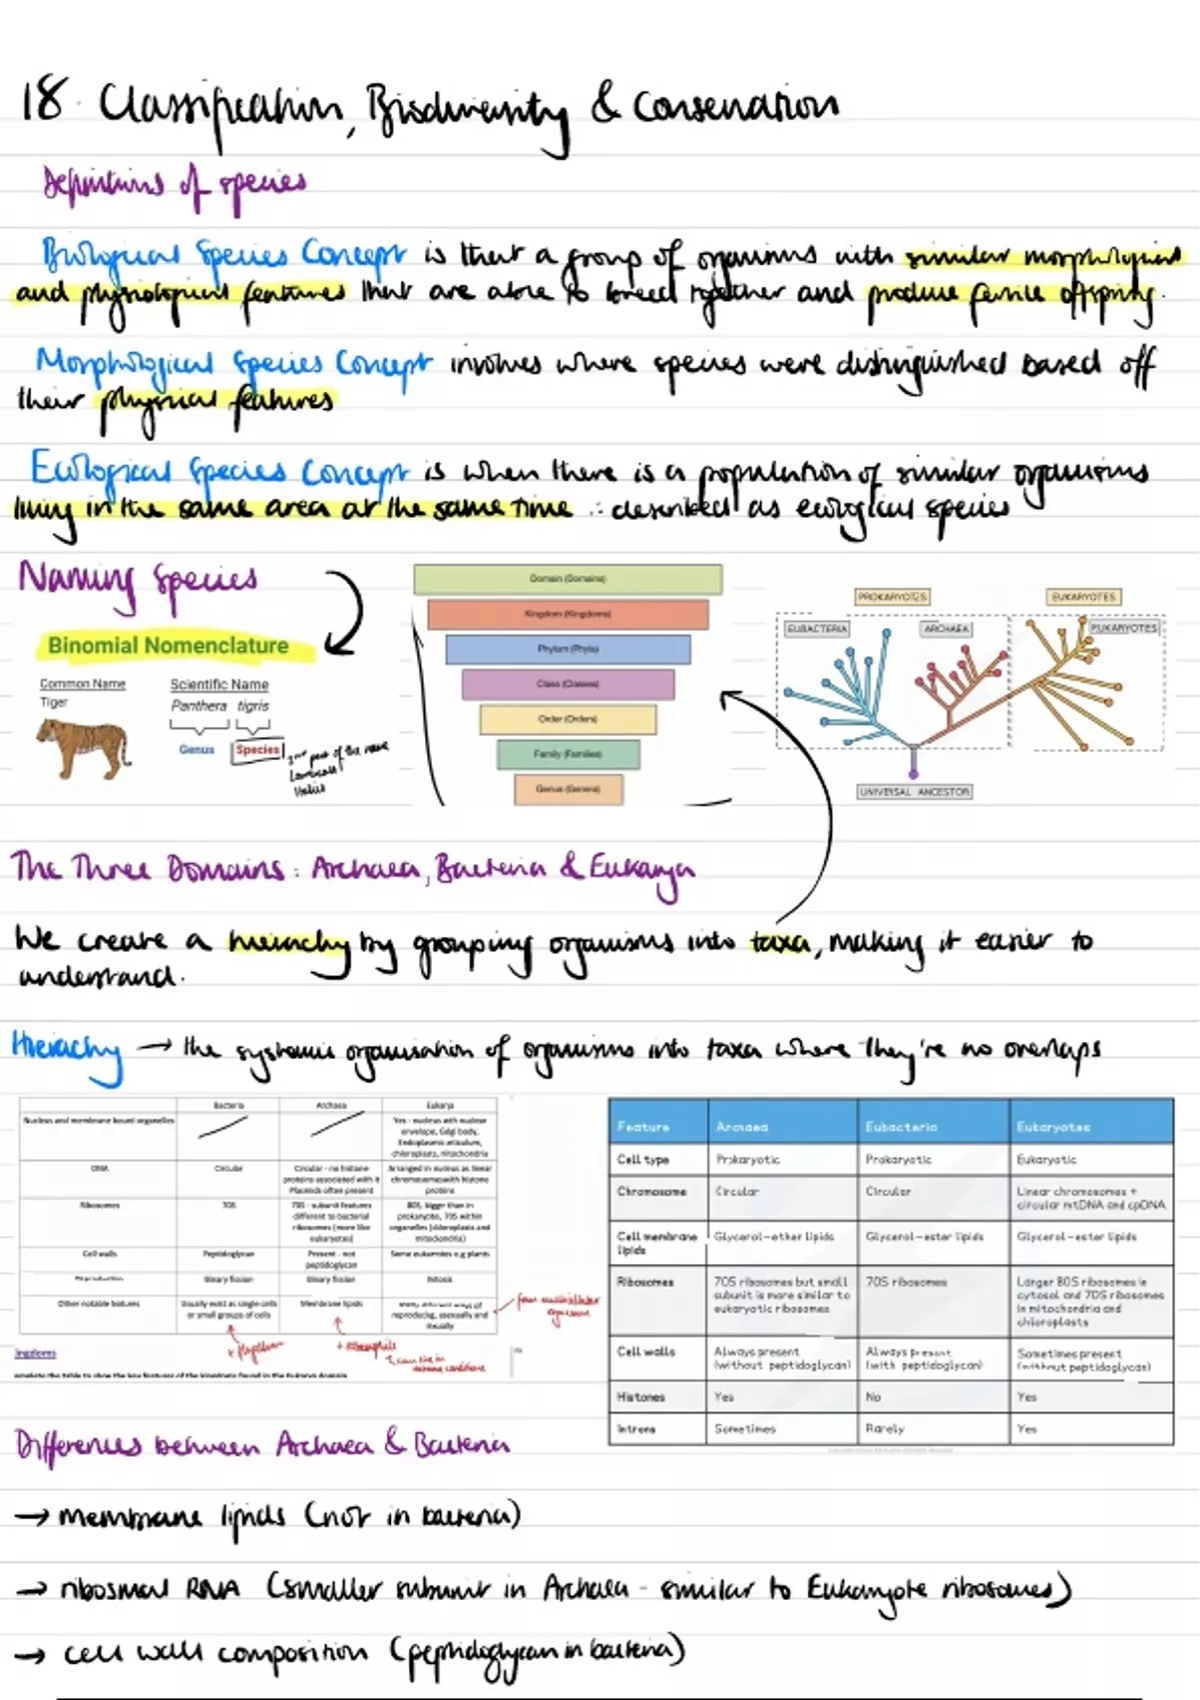 18. Classification, Biodiversity & Conservation
Definitions of species
Biological Species Concept is that a group of organisms with similar morphological
and physiological features that are able to breed together and produce fertile offspring.
Morphological Species Concept involves where species were distinguished based off
their physical features
Ecological Species Concept is when there is a population of similar organisms
living in the same area at the same time ∴ described as ecological species
Naming Species
Binomial Nomenclature
Common Name
Tiger
Scientific Name
Panthera tigris
Genus
Species
2nd part of the name
lowercase
italics
Domain (Domains)
Kingdom (Kingdoms)
Phylum (Phyla)
Class (Classes)
Order (Orders)
Family (Families)
Genus (Genera)
PROKARYOTES
EUKARYOTES
EUBACTERIA
ARCHAEA
EUKARYOTES
UNIVERSAL ANCESTOR
The Three Domains: Archaea, Bacteria & Eukarya
We create a hierachy by grouping organisms into taxa, making it easier to
understand.
Hierachy → the systemic organisation of organisms into taxa where they're no overlaps
Bacteria Archaea Eukarya
Nucleus and membrane bound organelles
Yes - nucleus with nuclear
envelope, Golgi body,
Endoplasmic reticulum,
chloroplasts, mitochondria
DNA
Circular
Circular - no histone
proteins associated with it
Plasmids often present
Arranged in nucleus as linear
chromosomes with histone
proteins
Ribosomes
70S
70S - subunit features
different to bacterial
ribosomes (more like
eukaryotes)
80S, bigger than in
prokaryotes, 70S within
organelles (chloroplasts and
mitochondria)
Cell walls
Peptidoglycan
Present - not
peptidoglycan
Some eukaryotes e.g plants
Reproduction
Binary fission
Binary fission
Mitosis
Other notable features
Usually exist as single cells
or small groups of cells
Membrane lipids
Many different ways of
reproducing, asexually and
sexually
form multicellular
organisms
can live in
extreme conditions
ingdoms
omplete the table to show the key features of the kingdoms found in the Eukarya domain
Feature Archaea Eubacteria Eukaryotes
Cell type Prokaryotic Prokaryotic Eukaryotic
Chromosome Circular Circular Linear chromosomes +
circular mtDNA and cpDNA
Cell membrane
lipids
Glycerol-ether lipids Glycerol-ester lipids Glycerol-ester lipids
Ribosomes
70S ribosomes but small
subunit is more similar to
eukaryotic ribosomes
70S ribosomes
Larger 80S ribosomes in
cytosol and 70S ribosomes
in mitochondria and
chloroplasts
Cell walls
Always present
(without peptidoglycan)
Always present
(with peptidoglycan)
Sometimes present
(without peptidoglycan)
Histones Yes No Yes
Introns Sometimes Rarely Yes
Differences between Archaea & Bacteria
→ membrane lipids (not in bacteria)
→ ribosmal RNA (smaller subunit in Archaea - similar to Eukaryote ribosomes)
→ cell walls composition (peptidoglycan in bacteria)